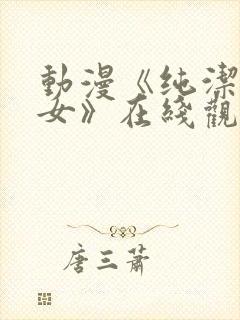 動漫《纯潔
女》在綫觀
唐三蕭